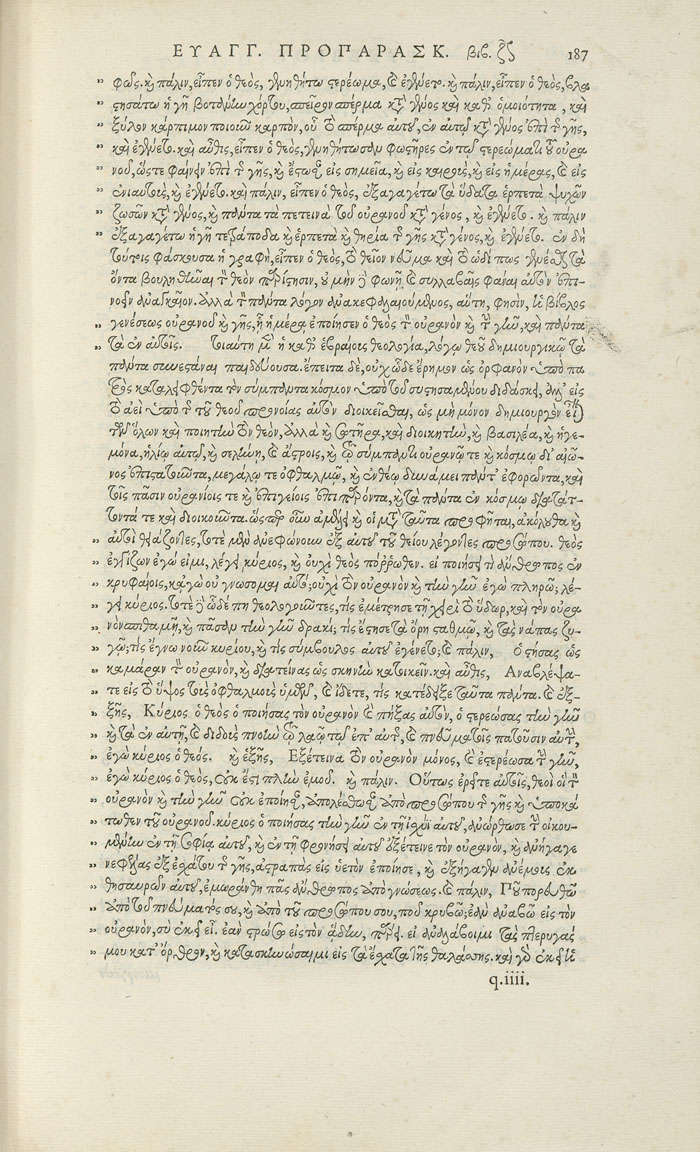 ΕΥΑΓΓ. ΠΡΟΠΑΡΑΣΚ. βιβ. ζʹ 187
φῶς. καὶ πάλιν, εἶπεν ὁ θεὸς, γενηθήτω στερέωμα, καὶ ἐγένετο. καὶ πάλιν, εἶπεν ὁ θεὸς, βλα
στησάτω ἡ γῆ βοτάνην χόρτου, σπεῖρον σπέρμα κατὰ γένος καὶ καθ' ὁμοιότητα, καὶ
ξύλον κάρπιμον ποιοῦν καρπὸν, οὗ τὸ σπέρμα αὐτοῦ, ἐν αὐτῷ κατὰ γένος ἐπὶ τῆς γῆς,
καὶ ἐγένετο. καὶ αὖθις, εἶπεν ὁ θεὸς, γενηθήτωσαν φωστῆρες ἐν τῷ στερεώματι τοῦ οὐρα
νοῦ, ὥστε φαίνειν ἐπὶ τῆς γῆς, καὶ ἔστωσαν εἰς σημεῖα, καὶ εἰς καιροὺς, καὶ εἰς ἡμέρας, καὶ εἰς
ἐνιαυτοὺς, καὶ ἐγένετο. καὶ πάλιν, εἶπεν ὁ θεὸς, ἐξαγαγέτω τὰ ὕδατα ἑρπετὰ ψυχῶν
ζωσῶν κατὰ γένος, καὶ πάντα τὰ πετεινὰ τοῦ οὐρανοῦ κατὰ γένος, καὶ ἐγένετο. καὶ πάλιν
ἐξαγαγέτω ἡ γῆ τετράποδα καὶ ἑρπετὰ καὶ θηρία τῆς γῆς κατὰ γένος, καὶ ἐγένετο. ἐν δὴ
τούτοις φάσκουσα ἡ γραφὴ, εἶπεν ὁ θεὸς, τὸ θεῖον νεῦμα καὶ τὸ ὧδέ πως γενέσθαι τὰ
ὄντα βουληθῆναι τὸν θεὸν παρίστησιν, οὐ μὴν φωνῇ καὶ συλλαβαῖς φάναι αὐτὸν ἐπι-
νοεῖν ἀναγκαῖον. ἀλλὰ τὸν πάντα λόγον ἀνακεφαλαιούμενος, αὕτη, φησὶν, ἡ βίβλος
γενέσεως οὐρανοῦ καὶ γῆς, ᾗ ἡμέρᾳ ἐποίησεν ὁ θεὸς τὸν οὐρανὸν καὶ τὴν γῆν, καὶ πάντα
τὰ ἐν αὐτοῖς. τοιαύτη μὲν ἡ καθ' ἑβραίους θεολογία, λόγῳ θεοῦ δημιουργικῷ τὰ
πάντα συνεστάναι παιδεύουσα. ἔπειτα δὲ, οὐχ ὧδε ἔρημον ὡς ὀρφανὸν ὑπὸ πα
τρὸς καταλειφθέντα τὸν σύμπαντα κόσμον ὑπὸ τοῦ συστησαμένου διδάσκει, ἀλλ' εἰς
τὸ ἀεὶ ὑπὸ τῆς τοῦ θεοῦ προνοίας αὐτὸν διοικεῖσθαι, ὡς μὴ μόνον δημιουργὸν εἶναι
τῶν ὅλων καὶ ποιητὴν τὸν θεὸν, ἀλλὰ καὶ σωτῆρα, καὶ διοικητὴν, καὶ βασιλέα, καὶ ἡγε-
μόνα, ἡλίῳ αὐτῷ, καὶ σελήνῃ, καὶ ἄστροις, καὶ τῷ σύμπαντι οὐρανῷ τε καὶ κόσμῳ δι' αἰῶ-
νος ἐπιστατοῦντα, μεγάλῳ τε ὀφθαλμῷ, καὶ ἐνθέῳ δυνάμει πάντ' ἐφορῶντα, καὶ
τοῖς πᾶσιν οὐρανίοις τε καὶ ἐπιγείοις ἐπιπαρόντα, καὶ τὰ πάντα ἐν κόσμῳ διατάτ-
τοντά τε καὶ διοικοῦντα. ὥσπερ οὖν ἀμέλει καὶ οἱ μετὰ ταῦτα προφῆται, ἀκόλουθα καὶ
αὐτοὶ θειάζοντες, τοτὲ μὲν ἀνεφώνουν ἐξ αὐτοῦ τοῦ θείου λέγοντες προσώπου. θεὸς
ἐγγίζων ἐγώ εἰμι, λέγει κύριος, καὶ οὐχὶ θεὸς πόῤῥωθεν. εἰ ποιήσει τι ἄνθρωπος ἐν
κρυφαίοις, κᾀγὼ οὐ γνώσομαι αὐτό; οὐχὶ τὸν οὐρανὸν καὶ τὴν γῆν ἐγὼ πληρῶ; λέ-
γει κύριος. τοτὲ δὲ ὧδέ πη θεολογοῦντες, τίς ἐμέτρησε τῇ χειρὶ τὸ ὕδωρ, καὶ τὸν οὐρα
νὸν σπιθαμῇ, καὶ πᾶσαν τὴν γῆν δρακί; τίς ἔστησε τὰ ὄρη σταθμῷ, καὶ τὰς νάπας ζυ-
γῷ; τίς ἔγνω νοῦν κυρίου, καὶ τίς σύμβουλος αὐτοῦ ἐγένετο; καὶ πάλιν, Ὁ στήσας ὡς
καμάραν τὸν οὐρανὸν, καὶ διατείνας ὡς σκηνὴν κατοικεῖν. καὶ αὖθις, Ἀναβλέψα-
τε εἰς τὸ ὕψος τοῖς ὀφθαλμοῖς ὑμῶν, καὶ ἴδετε, τίς κατέδειξε ταῦτα πάντα. καὶ ἑξ-
ξῆς, Κύριος ὁ θεὸς ὁ ποιήσας τὸν οὐρανὸν καὶ πήξας αὐτὸν, ὁ στερεώσας τὴν γῆν
καὶ τὰ ἐν αὐτῇ, καὶ διδοὺς πνοὴν τῷ λαῷ τῷ ἐπ' αὐτῆς, καὶ πνεῦμα τοῖς πατοῦσιν αὐτὴν,
ἐγὼ κύριος ὁ θεός. καὶ ἑξῆς, Ἐξέτεινα τὸν οὐρανὸν μόνος, καὶ ἐστερέωσα τὴν γῆν,
ἐγὼ κύριος ὁ θεὸς, οὐκ ἔστι πλὴν ἐμοῦ. καὶ πάλιν. Οὕτως ἐρεῖτε αὐτοῖς, θεοὶ οἳ τὸν
οὐρανὸν καὶ τὴν γῆν οὐκ ἐποίησαν, ἀπολέσθωσαν ἀπὸ προσώπου τῆς γῆς καὶ ὑποκά
τωθεν τοῦ οὐρανοῦ. κύριος ὁ ποιήσας τὴν γῆν ἐν τῇ ἰσχύϊ αὐτοῦ, ἀνώρθωσε τὴν οἰκου-
μένην ἐν τῇ σοφίᾳ αὐτοῦ, καὶ ἐν τῇ φρονήσει αὐτοῦ ἐξέτεινε τὸν οὐρανὸν, καὶ ἀνήγαγε
νεφέλας ἐξ ἐσχάτου τῆς γῆς, ἀστραπὰς εἰς ὑετὸν ἐποίησε, καὶ ἐξήγαγεν ἀνέμους ἐκ
θησαυρῶν αὐτοῦ, ἐμωράνθη πᾶς ἄνθρωπος ἀπὸ γνώσεως. καὶ πάλιν, Ποῦ πορευθῶ
ἀπὸ τοῦ πνεύματός σου, καὶ ἀπὸ τοῦ προσώπου σου, ποῦ κρυβῶ; ἐὰν ἀναβῶ εἰς τὸν
οὐρανὸν, σὺ ἐκεῖ εἶ. ἐὰν στρώσω εἰς τὸν ᾅδην, πάρει. εἰ ἀναλάβοιμι τὰς πτέρυγάς
μου κατ' ὄρθρον, καὶ κατασκηνώσαιμι εἰς τὰ ἔσχατα τῆς θαλάσσης. καὶ γὰρ ἐκεῖ ἡ
q.iiii.